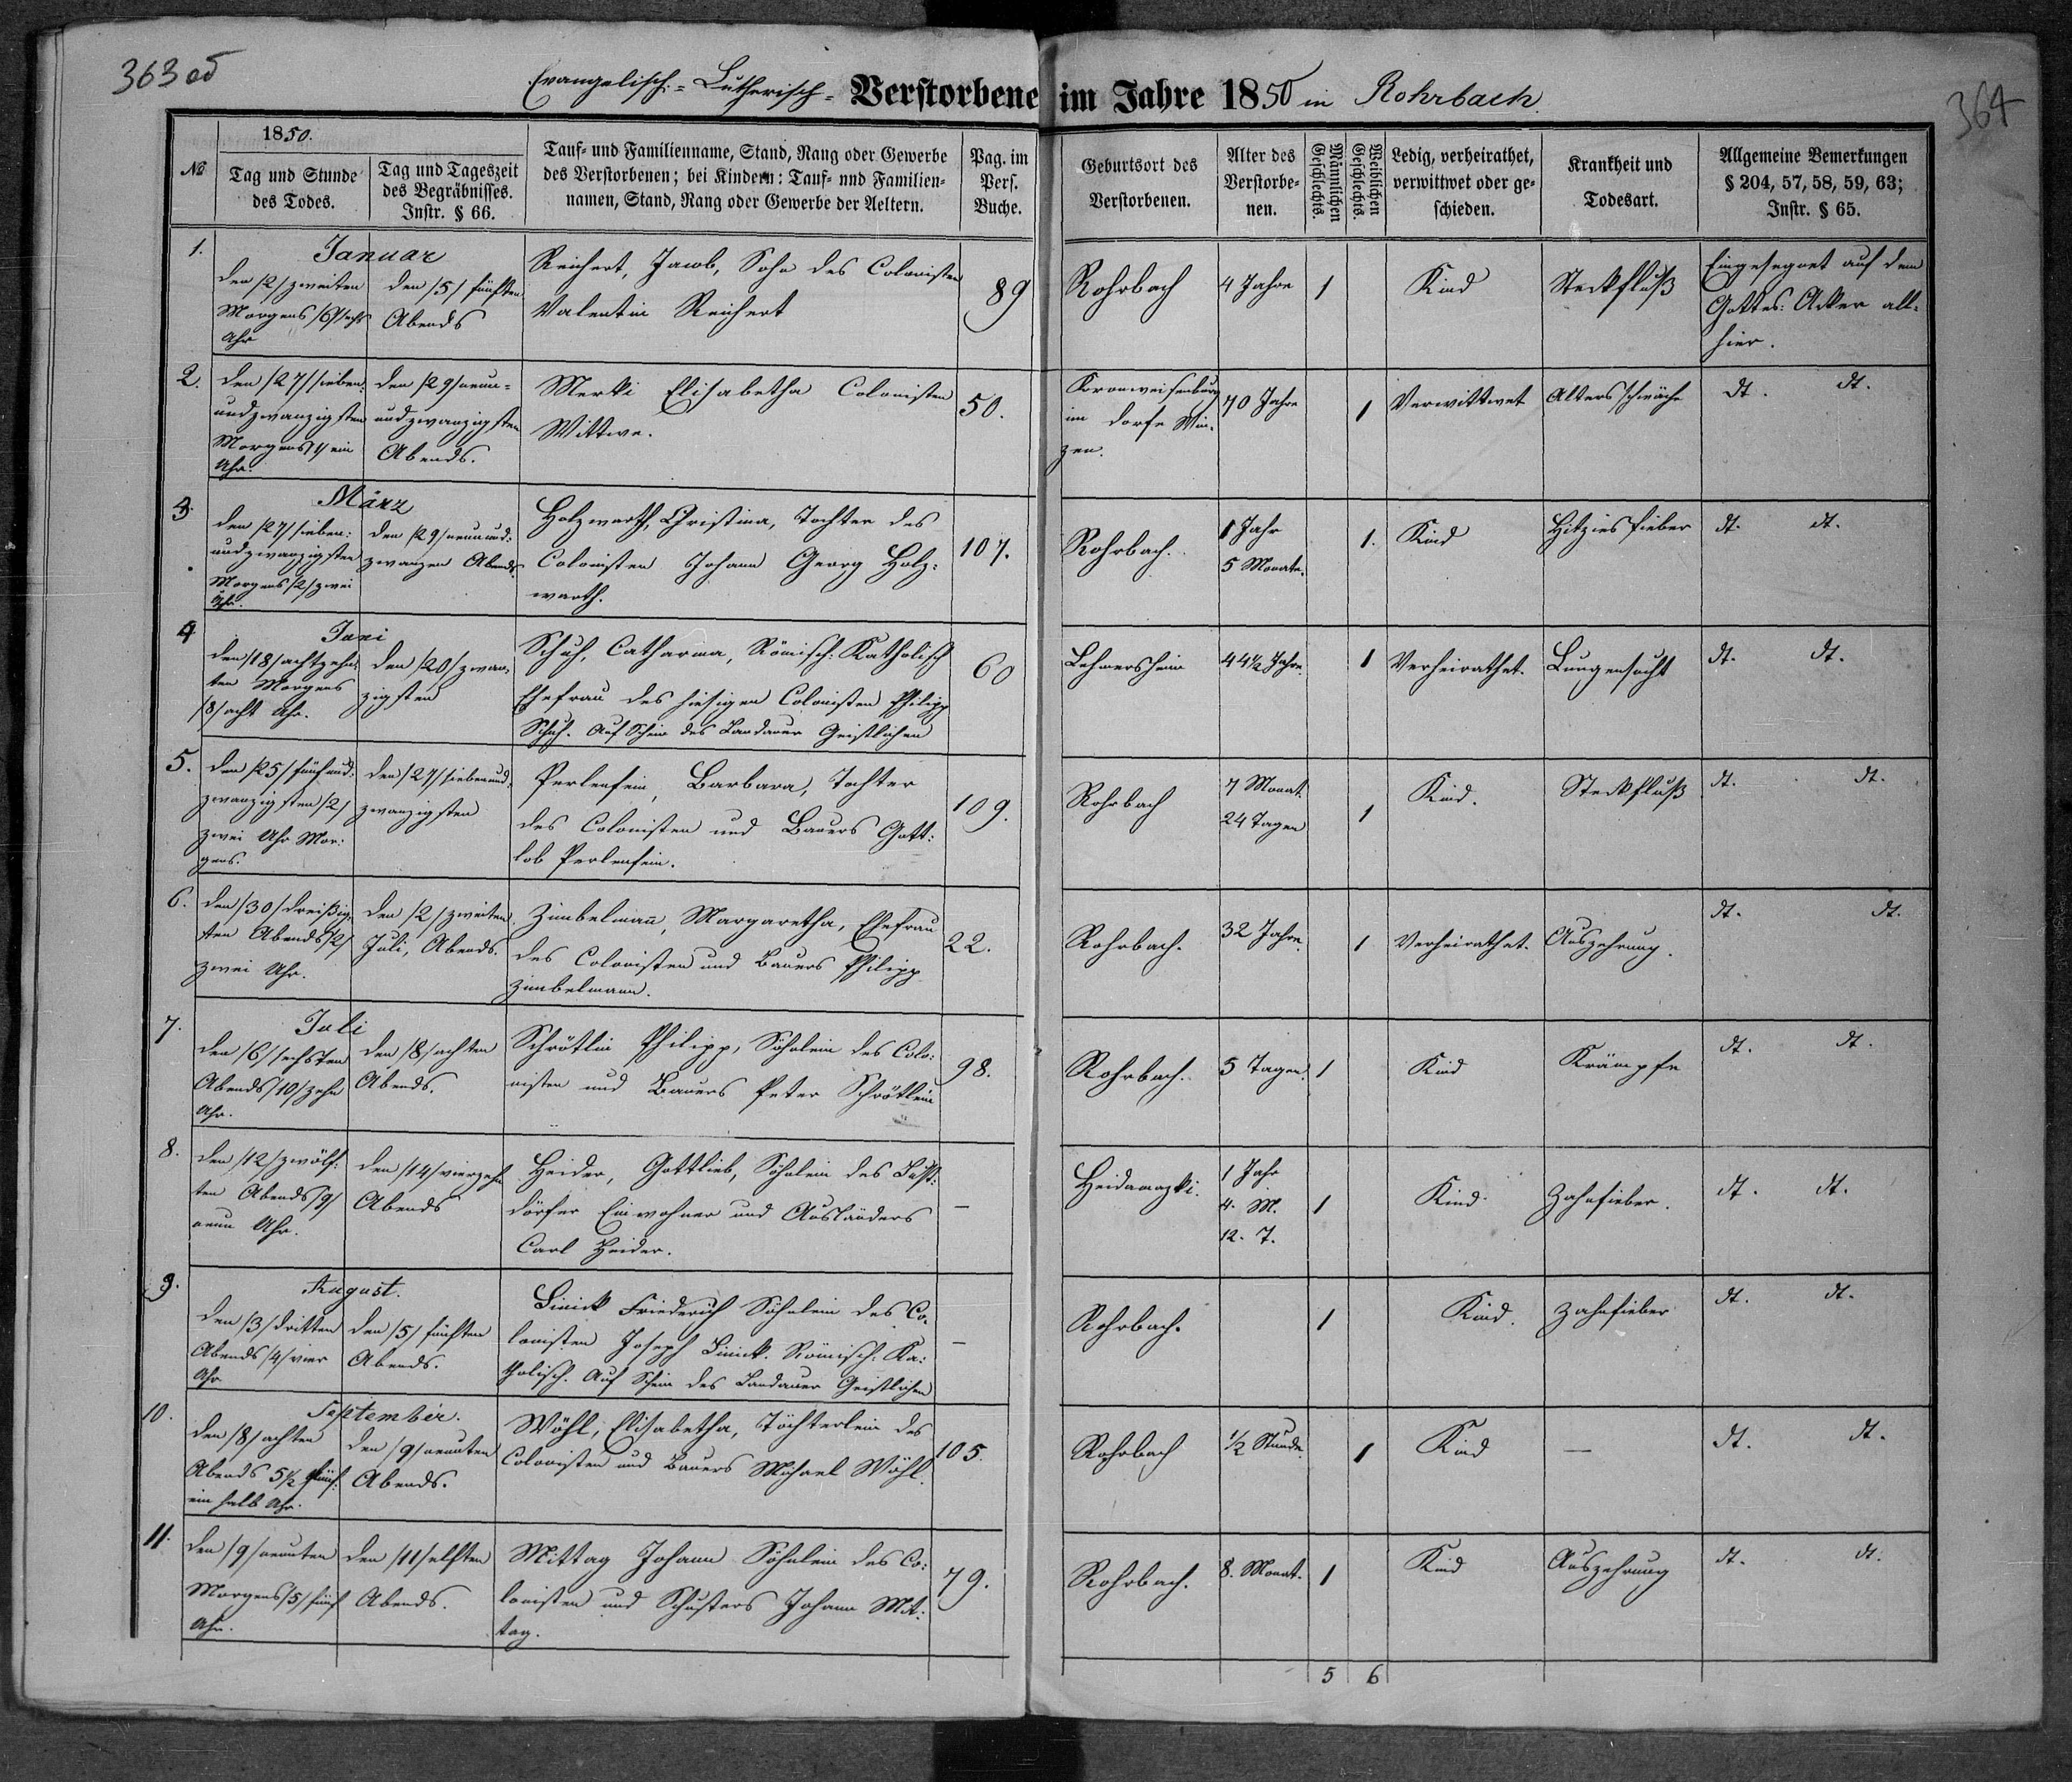 363 об
364
Evangelisch-Lutherisch- Verstorbene im Jahre 1850 in Rohrbach
№
1850.
Tag und Stunde
des Todes.
Tag und Tageszeit
des Begräbnisses.
Instr. § 66.
Tauf- und Familienname, Stand, Rang oder Gewerbe
des Verstorbenen; bei Kindern: Tauf- und Familien-
namen, Stand, Rang oder Gewerbe der Aeltern.
Pag. im
Pers.
Buche.
Geburtsort des
Verstorbenen.
Alter des
Verstorbe-
nen.
Männlichen
Geschlechts.
Weiblichen
Geschlechts.
Ledig, verheirathet,
verwittwet oder ge-
schieden.
Krankheit und
Todesart.
Allgemeine Bemerkungen
§ 204, 57, 58, 59, 63;
Instr. § 65.
1.
Januar
den /2/ zweiten
Morgens /6/ sechs
Uhr
den /5/ fünften
Abends
Reichert, Jacob, Sohn des Colonisten
Valentin Reichert
89
Rohrbach
4 Jahre
1
Kind
Steckfluß
Eingesegnet auf dem
Gottes: Acker all-
hier.
2.
den /27/ sieben:
undzwanzigsten
Morgens 1/ ein
Uhr.
den /29/ neun-
undzwanzigsten
Abends.
Merki Elisabetha Colonisten
Wittwe.
50.
Kronweisenburg
im dorfe Min-
zen.
70 Jahre
1
Verwittwet
Altersschwäche
dt. dt.
3.
März
den /27/ sieben:
undzwanzigsten
Morgens /2/ zwei
Uhr.
den /29/ neunund:
zwanzen Abends.
Holzwarth, Christina, Tochter des
Colonisten Johann Georg Holz:
warth.
107.
Rohrbach.
1 Jahr
5 Monate.
1.
Kind
Hitzies fieber
dt. dt.
4
Juni
den /18/ achtzehn-
ten Morgens
/8/ acht Uhr.
den /20/ zwan-
zigsten
Schuh, Catharina, Römisch: Katholisch
Ehefrau des hiesigen Colonisten Philipp
Schuh. Auf Schein des Landauer Geistlichen
60
Lehmersheim
44 1/2 Jahre.
1
Verheirathet.
Lungensucht
dt. dt.
5.
den /25/ fünfund:
zwanzigsten /2/
zwei Uhr Mor:
gens.
den /27/ siebenund:
zwanzigsten
Perlenfein, Barbara, Tochter
des Colonisten und Bauers Gott:
lob Perlenfein.
109.
Rohrbach
7 Monat.
24 Tagen
1
Kind.
Steckfluß
dt. dt.
6.
den /30/ dreißig-
sten Abends /2/
zwei Uhr.
den /2/ zweiten
Juli, Abends.
Zimbelmañ, Margaretha, Ehefrau
des Colonisten und Bauers Philipp
Zimbelmann.
22.
Rohrbach.
32 Jahre.
1
Verheirathet.
Auszehrung.
dt. dt.
7.
Juli
den /6/ sechsten
Abends /10/ zehn
Uhr.
den /8/ achten
Abends.
Schrötlin Philipp, Söhnlein des Colo:
nisten und Bauers Peter Schrötlein
98.
Rohrbach.
5 Tagen.
1
Kind
Krämpfe
dt. dt.
8.
den /12/ zwölf:
ten Abends /9/
neun Uhr.
den /14/ vierzehn
Abends
Heider, Gottlieb, Söhnlein des
dörfer Einwohner und Ausländers
Carl Heider.
–
Heidamazki.
1 Jahr
4. M.
12. T.
1
Kind
Zahnfieber.
dt. dt.
9.
August.
den /3/ dritten
Abends /4/ vier
Uhr
den /5/ fünften
Abends.
Linick Friederich Söhnlein des Co-
lonisten Joseph Linick. Römisch: Ka:
tholisch. Auf Schein des Landauer Geistlichen
–
Rohrbach.
1
Kind.
Zahnfieber
dt. dt.
10.
September.
den /8/ achten
Abends 5 1/2 fünf:
ein halb Uhr.
den /9/ neunten
Abends.
Wöhl, Elisabetha, Töchterlein des
Colonisten und Bauers Michael Wöhl.
105.
Rohrbach
1/2 Stunde.
1
Kind
–
dt. dt.
11.
den /9/ neunten
Morgens /5/ fünf
Uhr.
den /11/ elften
Abends.
Mittag Johann Söhnlein des Co:
lonisten und Schusters Johann Mit:
tag.
79.
Rohrbach.
8. Monat.
1
Kind
Auszehrung
dt. dt.
5 6